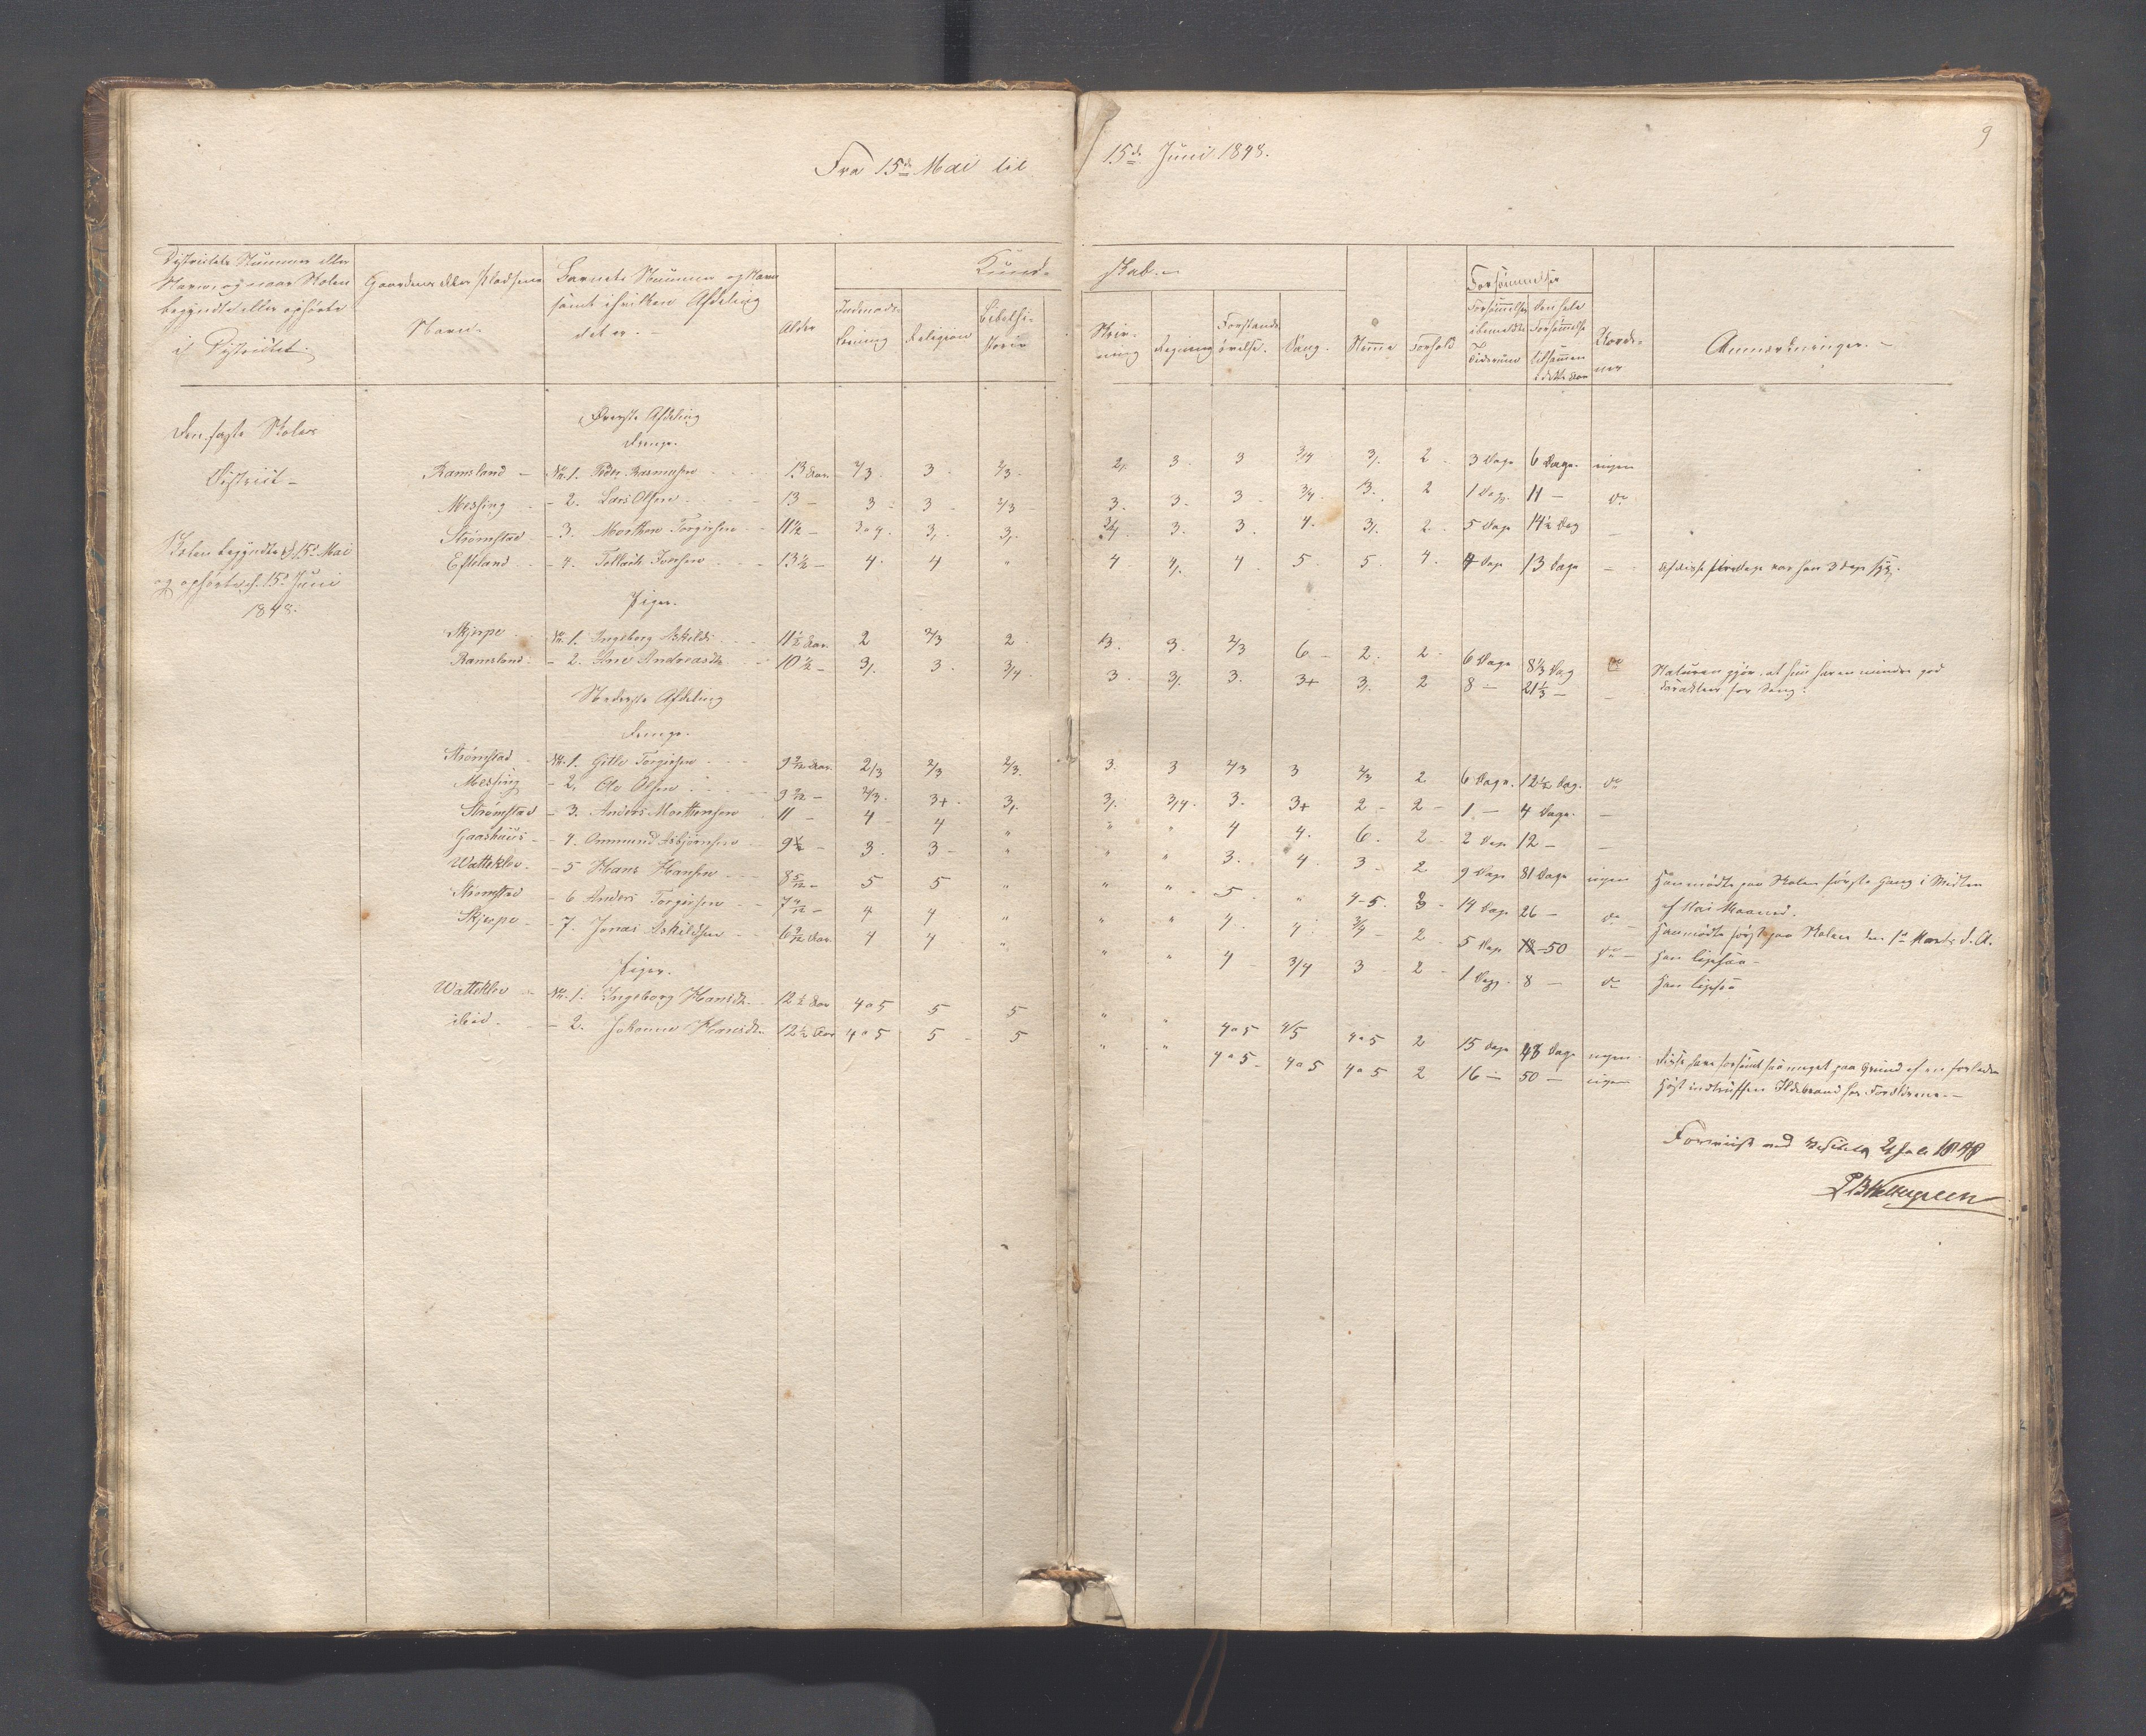 9
Fra 15de Mai til 15de Juni 1848.
Districtets Nummer eller
Navn og naar Skolen
begyndte eller ophørte
i Districtet.
Gaardens eller Pladsens
Navn.
Barnets Nummer og Navn
samt i hvilken Afdeling
det er.
Alder
Kund-
skab.
Indenads-
læsning
Religion
Bibelhi-
storie
Skriv-
ning
Regning
Forstands-
øvelse.
Sang.
Nemme
Forhold
Forsømmelser
Forsømmelser
i bemeldte
Tidsrum
Den hele
Forsømmelse
tilsammen
i dette Aar
Anmærkninger.
Den faste Skoles
District
Skolen begyndte d. 15d Mai
og ophørte d. 15d Juni
1848.
Øverste Afdeling
Drenge.
Ramsland No. 1. Peder Rasmusen 13 Aar 2/3 3 2/3 2/. 3 3 3/4 3/. 2 3 Dage 6 Dage ingen
Messing - 2. Lars Olsen 13 - 3 3 2/3 3. 3. 3 3/4 3. 2 1 Dag 11 - do
Strømstad - 3. Morthen Torgiersen 11½ - 3a4. 3/. 3/. 3/4 3. 3. 4. 3/. 2 5 Dage 14½ Dag -
Efteland - 4. Tollach Iversen 13½ - 4 4 " 4 4/. 4 5 5 4 4 Dage 13 Dage - Af disse fire Dage var han 3 Dage syg.
Piger.
Skjerpe No. 1. Ingeborg Askilds 11½ Aar 2 2/3 2 3. 3. 2/3 6 2 2 6 Dage 8⅓ Dag do Naturen gjør, at hun har en mindre god
Ramsland - 2. Ane Andreasdr. 10½ - 3/. 3 3/4 3 3/. 3. 3+ 3/. 2 8 - 21⅓ - - Karakteer for Sang.
Nederste Afdeling
Drenge.
Strømstad No. 1. Gitle Torgiersen 9 9/12 Aar. 2/3 2/3 2/3. 3. 3 2/3 3 2/3 2 6 Dage. 12½ Dag. do
Messing - 2. Ole Olsen 9 9/12 - 2/3. 3+ 3/. 3/. 3/4. 3. 3+ 2 2 1 - 4 Dage. -
Strømstad - 3. Anders Morthensen 11 - 4 4 " " " 4 4. 6. 2 2 Dage 12 - -
Gaashuus - 4. Ommund Asbjørnsen 9½ - 3. 3 " " " 3. 4 3 2 9 Dage 81 Dage ingen Han mødte paa Skolen første Gang i Midten
af Mai Maaned.
Watteklev - 5 Hans Hansen 8 5/12 - 5 5 " " " 5 " 4-5. 3 14 Dage 26 - do Han mødte først paa Skolen den 1ste Marts d. A.
Strømstad - 6 Anders Torgiersen 7 4/12 - 4 4 " " " 4 4 3/4 2 5 Dage 50 do Han ligesaa
Skjerpe - 7. Jonas Askildsen 6 9/12 Aar. 4 4 " " " 4 3/4 3 2 1 Dag. 8 - do Han ligesaa
Piger.
Watteklev No. 1. Ingeborg Hansdr. 12½ Aar 4a5 5 5 " " 4a5 4/5 4a5 2 15 Dage 48 Dage ingen Disse have forsømt saa meget paa Grund af en forleden
ibid. - 2. Johanne Hansdr. 12½ Aar 4a5 5 5 " " 4a5 4a5 4a5 2 16 - 50 - ingen Høst indtruffen Ildebrand hos Forældrene.
Foreviist ved Visitats 2 Juli 1848